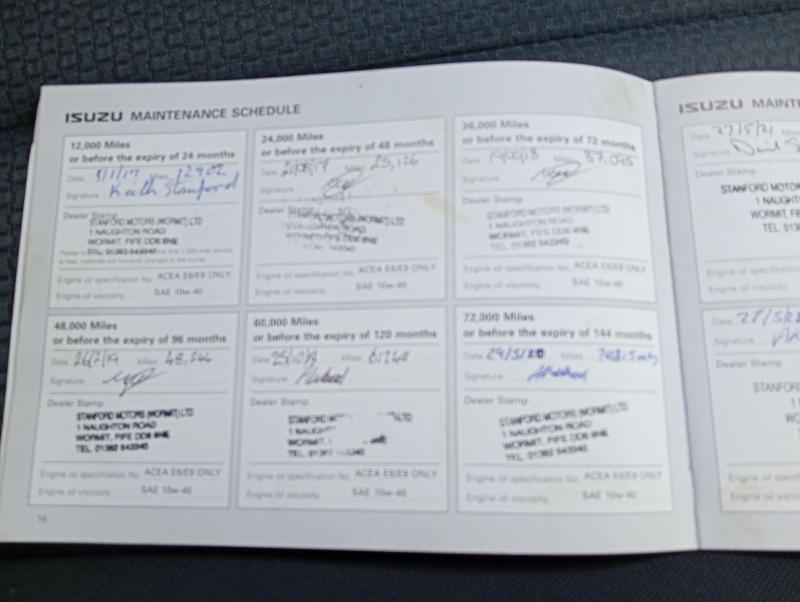 ISUZU MAINTENANCE SCHEDULE
12,000 Miles
or before the expiry of 24 months
Date 9/1/17 Miles 12902
Signature Keith Stanford
Dealer Stamp
STANFORD MOTORS (WORMIT) LTD
1 NAUGHTON ROAD
WORMIT, FIFE DD6 8NE
TEL. 01382 543340
Engine oil specification No. ACEA E6/E9 ONLY
Engine oil viscosity SAE 10w-40
24,000 Miles
or before the expiry of 48 months
Date Miles 25,126
Signature
Dealer Stamp
Engine oil specification No. ACEA E6/E9 ONLY
Engine oil viscosity SAE 10w-40
36,000 Miles
or before the expiry of 72 months
Date Miles 37,045
Signature
Dealer Stamp
STANFORD MOTORS (WORMIT) LTD
1 NAUGHTON ROAD
WORMIT, FIFE DD6 8NE
TEL. 01382 543340
Engine oil specification No. ACEA E6/E9 ONLY
Engine oil viscosity SAE 10w-40
48,000 Miles
or before the expiry of 96 months
Date 26/2/19 Miles
Signature
Dealer Stamp
STANFORD MOTORS (WORMIT) LTD
1 NAUGHTON ROAD
WORMIT, FIFE DD6 8NE
TEL. 01382 543340
Engine oil specification No. ACEA E6/E9 ONLY
Engine oil viscosity SAE 10w-40
60,000 Miles
or before the expiry of 120 months
Date 25/10/19 Miles
Signature
Dealer Stamp
WORMIT,
Engine oil specification No. ACEA E6/E9 ONLY
Engine oil viscosity SAE 10w-40
72,000 Miles
or before the expiry of 144 months
Date 29/5/20 Miles
Signature
Dealer Stamp
STANFORD MOTORS (WORMIT) LTD
1 NAUGHTON ROAD
WORMIT, FIFE DD6 8NE
TEL. 01382 543340
Engine oil specification No. ACEA E6/E9 ONLY
Engine oil viscosity SAE 10w-40
16
ISUZU MAINT
Date 27/5/21
Signature
Dealer Stamp
STANFORD MOTO
1 NAUGHT
WORMIT, F
TEL. 0
Engine oil specification
Engine oil viscosity
Date
Signature
Dealer Stamp
STANFORD
Engine oil specification
Engine oil viscosity